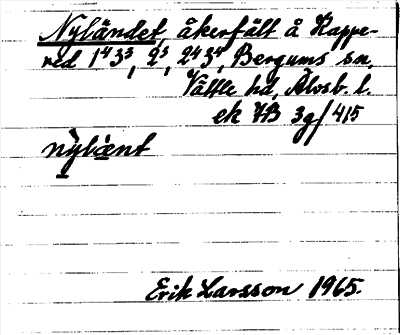 Nyländet, åkerfält å Kappe-
red 1⁴3³, 2³, 2⁴3⁴, Bergums sn,
Vättle hd, Älvsb. l.
ek 7B 3g/415
nỳlä̀nt
Erik Larsson 1965.